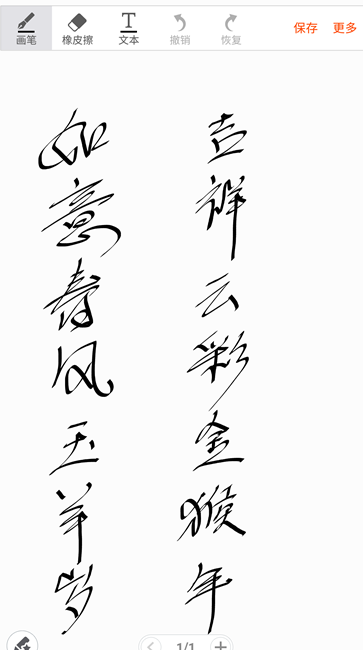 画笔 橡皮擦 文本 撤销 恢复 保存 更多
吉祥云彩金猴年
如意春风玉羊岁
1/1